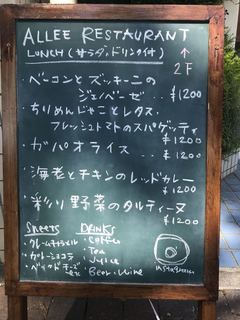 ALLEE RESTAURANT
LUNCH (サラダ、ドリンク付) ↑
2F
・ベーコンとズッキーニの
ジェノベーゼ ‥ ¥1200
・ちりめんじゃことレタス、
フレッシュトマトのスパゲッティ
¥1200
・ガパオライス ‥ ¥1200
・海老とチキンのレッドカレー
¥1200
・彩り野菜のタルティーヌ
¥1200
SWEETS DRINKS
・クレームキャラメル ・Coffee
・ガトーショコラ ・Tea
・ベイクドチーズ ・Juice
・Beer・Wine
Instagram